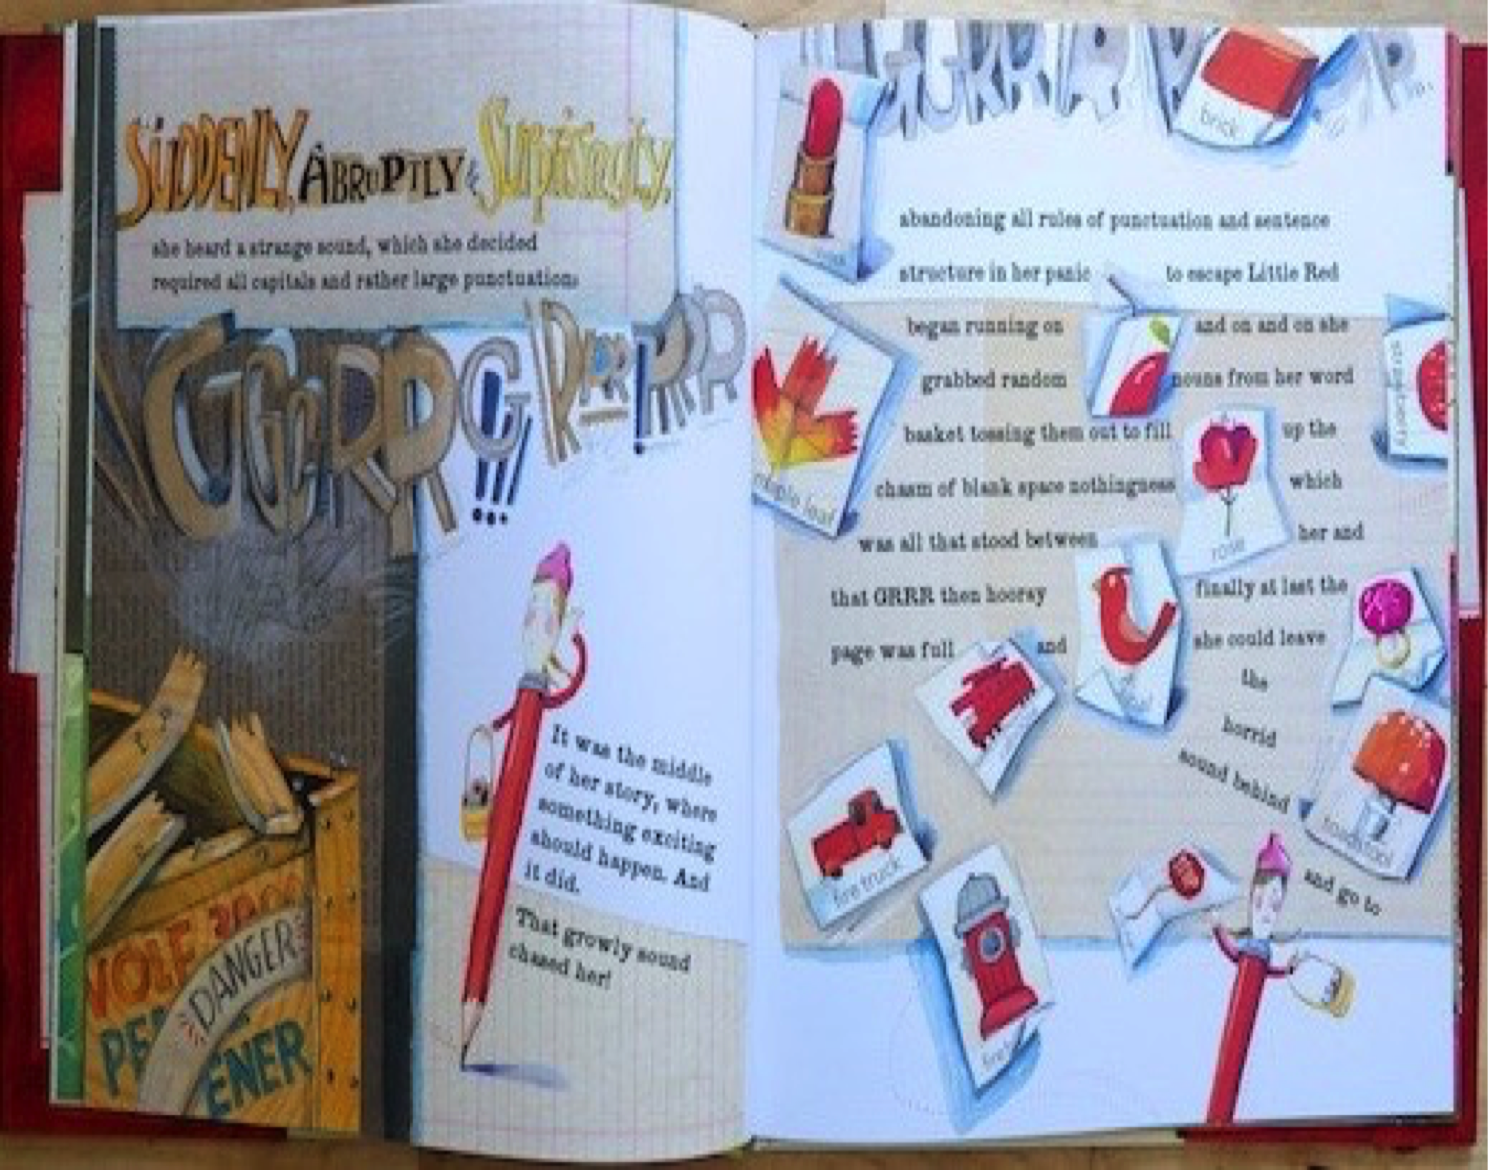 SUDDENLY, ABRUPTLY & SURPRISINGLY,
she heard a strange sound, which she decided
required all capitals and rather large punctuation:
It was the middle
of her story, where
something exciting
should happen. And
it did.
That growly sound
chased her!
DANGER
ENER
brick
abandoning all rules of punctuation and sentence
structure in her panic to escape Little Red
began running on and on and on she
grabbed random nouns from her word
basket tossing them out to fill up the
chasm of blank space nothingness which
was all that stood between her and
that GRRR then hooray finally at last the
page was full and she could leave
the
horrid
sound behind
and go to
maple leaf
strawberry
rose
toadstool
fire truck